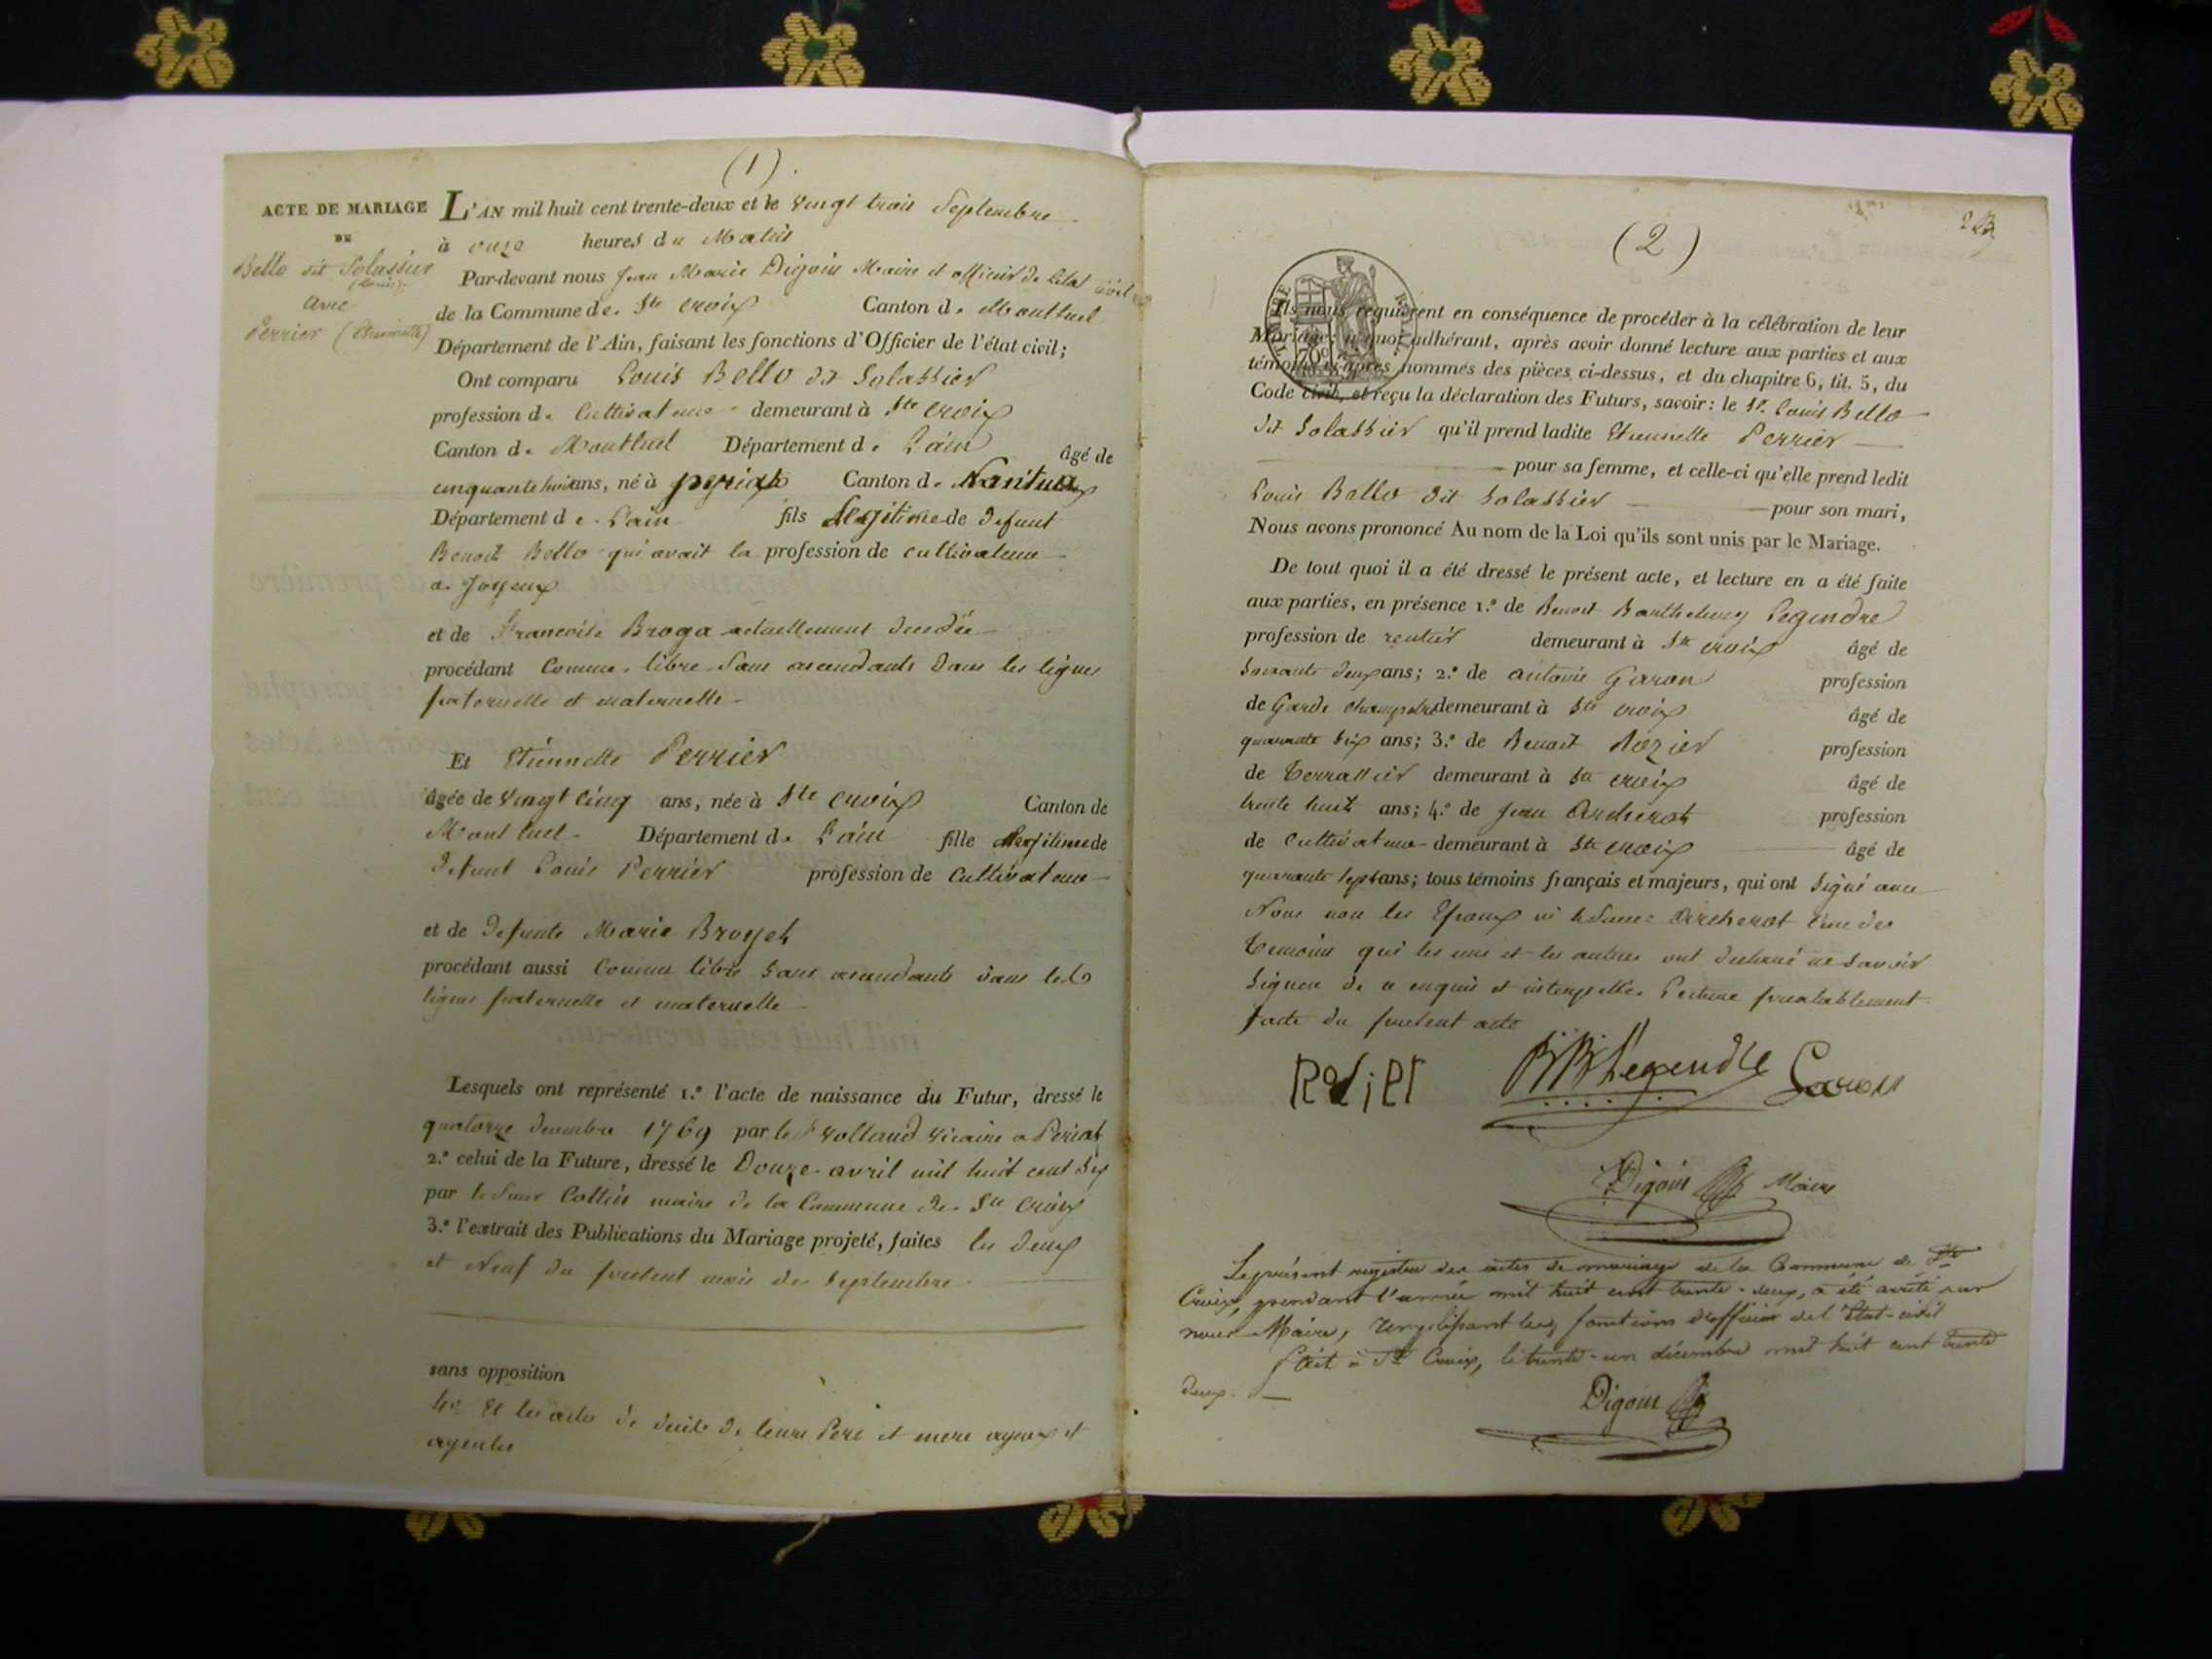 (1)
ACTE DE MARIAGE
DE
Bello dit Solassier
(Louis)
avec
Perrier (Etiennette)
L'AN mil huit cent trente-deux et le vingt trois Septembre
à onze heures du Matin
Par-devant nous Jean Marie Digoin Maire et officier de l'état civil
de la Commune de Ste Croix Canton de Montluel
Département de l'Ain, faisant les fonctions d'Officier de l'état civil;
Ont comparu Louis Bello dit Solassier
profession de Cultivateur demeurant à Ste Croix
Canton de Montluel Département de L'ain âgé de
cinquante huit ans, né à peyriat Canton de Nantua
Département de L'ain fils Legitime de defunt
Benoit Bello qui avait la profession de cultivateur
a Joyeux
et de Francoise Broga actuellement
procédant Comme libre Sans ascendants dans les lignes
paternelle et maternelle
Et Etiennette Perrier
âgée de vingt cinq ans, née à Ste Croix Canton de
Montluel Département de L'ain fille Legitime de
defunt Louis Perrier profession de Cultivateur
et de defunte Marie Broyet
procédant aussi Comme libre Sans ascendants dans les
lignes paternelle et maternelle
Lesquels ont représenté 1.º l'acte de naissance du Futur, dressé le
quatorze decembre 1769 par le Sr Volland Vicaire a Periat
2.º celui de la Future, dressé le Douze avril mil huit cent Sept
par le Sieur Collin maire de la Commune de Ste Croix
3.º l'extrait des Publications du Mariage projeté, faites les deux
et Neuf du present mois de Septembre
sans opposition
4º Et les actes de decès de leurs Pere et mere ayeux et
ayeules
(2)
23
TIMBRE ROYAL
Ils nous requièrent en conséquence de procéder à la célébration de leur
Mariage, à quoi adhérant, après avoir donné lecture aux parties et aux
témoins ci-après nommés des pièces ci-dessus, et du chapitre 6, tit. 5, du
Code civil, et reçu la déclaration des Futurs, savoir: le Sr. Louis Bello
dit Solassier qu'il prend ladite Etiennette Perrier
pour sa femme, et celle-ci qu'elle prend ledit
Louis Bello dit Solassier pour son mari,
Nous avons prononcé Au nom de la Loi qu'ils sont unis par le Mariage.
De tout quoi il a été dressé le présent acte, et lecture en a été faite
aux parties, en présence 1.º de Benoit Barthelemy Legendre
profession de rentier demeurant à Ste Croix âgé de
Soixante deux ans; 2.º de antoine Garon profession
de Garde champetre demeurant à Ste Croix âgé de
quarante Six ans; 3.º de Benoit Rozier profession
de terrassier demeurant à Ste Croix âgé de
trente huit ans; 4.º de Jean Orcherat profession
de Cultivateur demeurant à Ste Croix âgé de
quarante sept ans; tous témoins français et majeurs, qui ont Signé avec
Nous non les Epoux ni le Sieur Orcherat l'un des
temoins qui les uns et les autres ont declaré ne Savoir
Signer de ce enquis et interpellés Lecture prealablement
faite du present acte
Rosier BBLegendre Garon
Digoin Maire
Le présent registre des actes de mariage de la Commune de Ste
Croix, pendant l'année mil huit cent trente-deux, a été arrêté par
nous Maire, remplissant les fonctions d'officier de l'Etat-civil
fait à Ste Croix, le trente-un décembre mil huit cent trente
deux.
Digoin